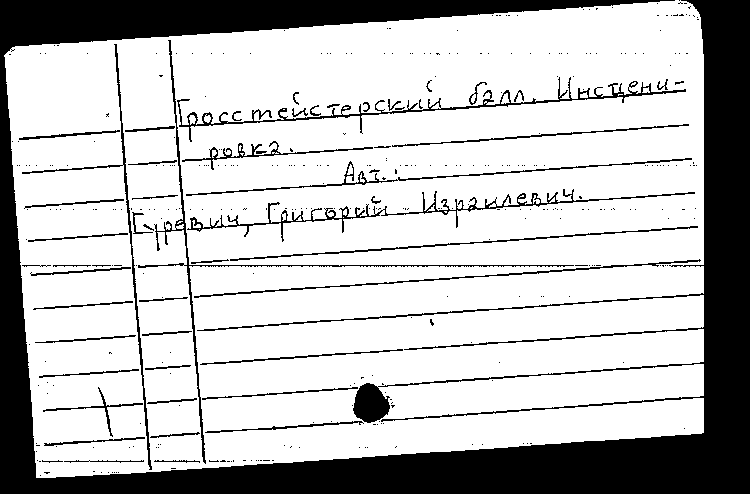 Гросстейстерский балл. Инсцени-
ровка.
Авт.:
Гуревич, Григорий Израилевич.